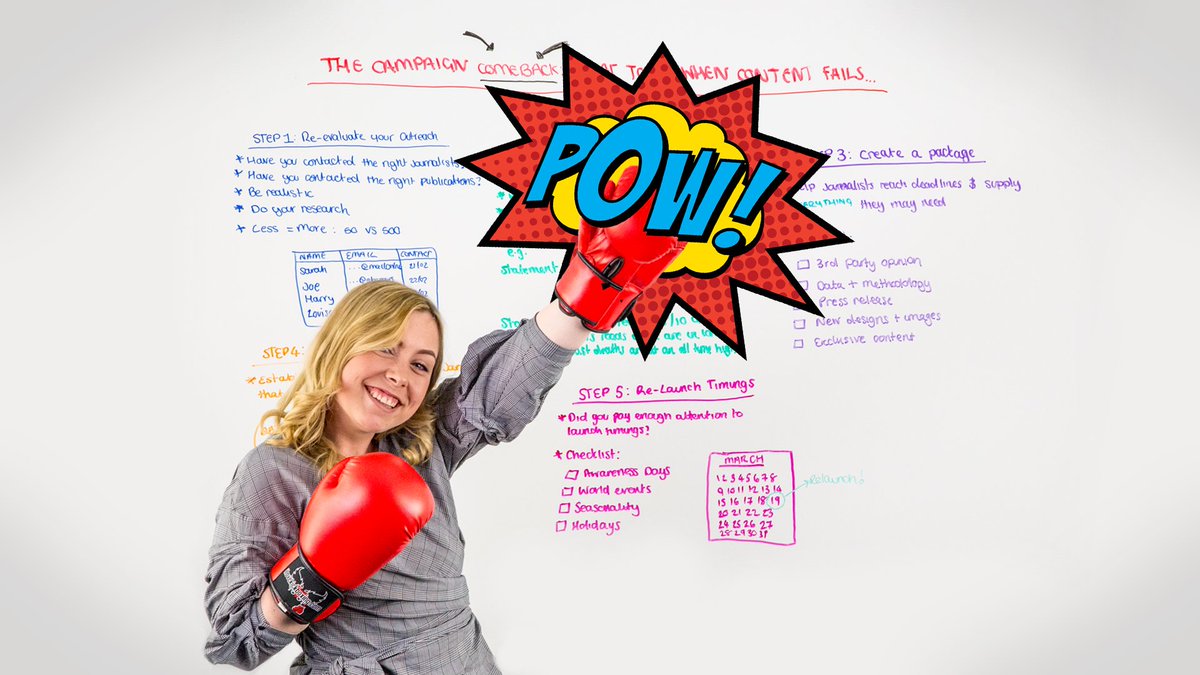 THE CAMPAIGN COMEBACK WHEN CONTENT FAILS...
POW!
STEP 1: Re-evaluate your Outreach
* Have you contacted the right journalists?
* Have you contacted the right publications?
* Be realistic
* Do your research
* Less = More : 50 vs 500
NAME EMAIL CONTACT
Sarah 21/02
Joe 22/02
Harry
e.g.
Statement
3: Create a package
journalists reach deadlines & supply
they may need
3rd Party opinion
Data + methodology
Press release
New designs + images
Exclusive content
STEP 4:
that
STEP 5: Re-Launch Timings
* Did you pay enough attention to
launch timings?
* Checklist:
Awareness Days
World events
Seasonality
Holidays
MARCH
1 2 3 4 5 6 7 8
9 10 11 12 13 14
15 16 17 18 19
20 21 22 23
24 25 26 27
28 29 30 31
Relaunch!